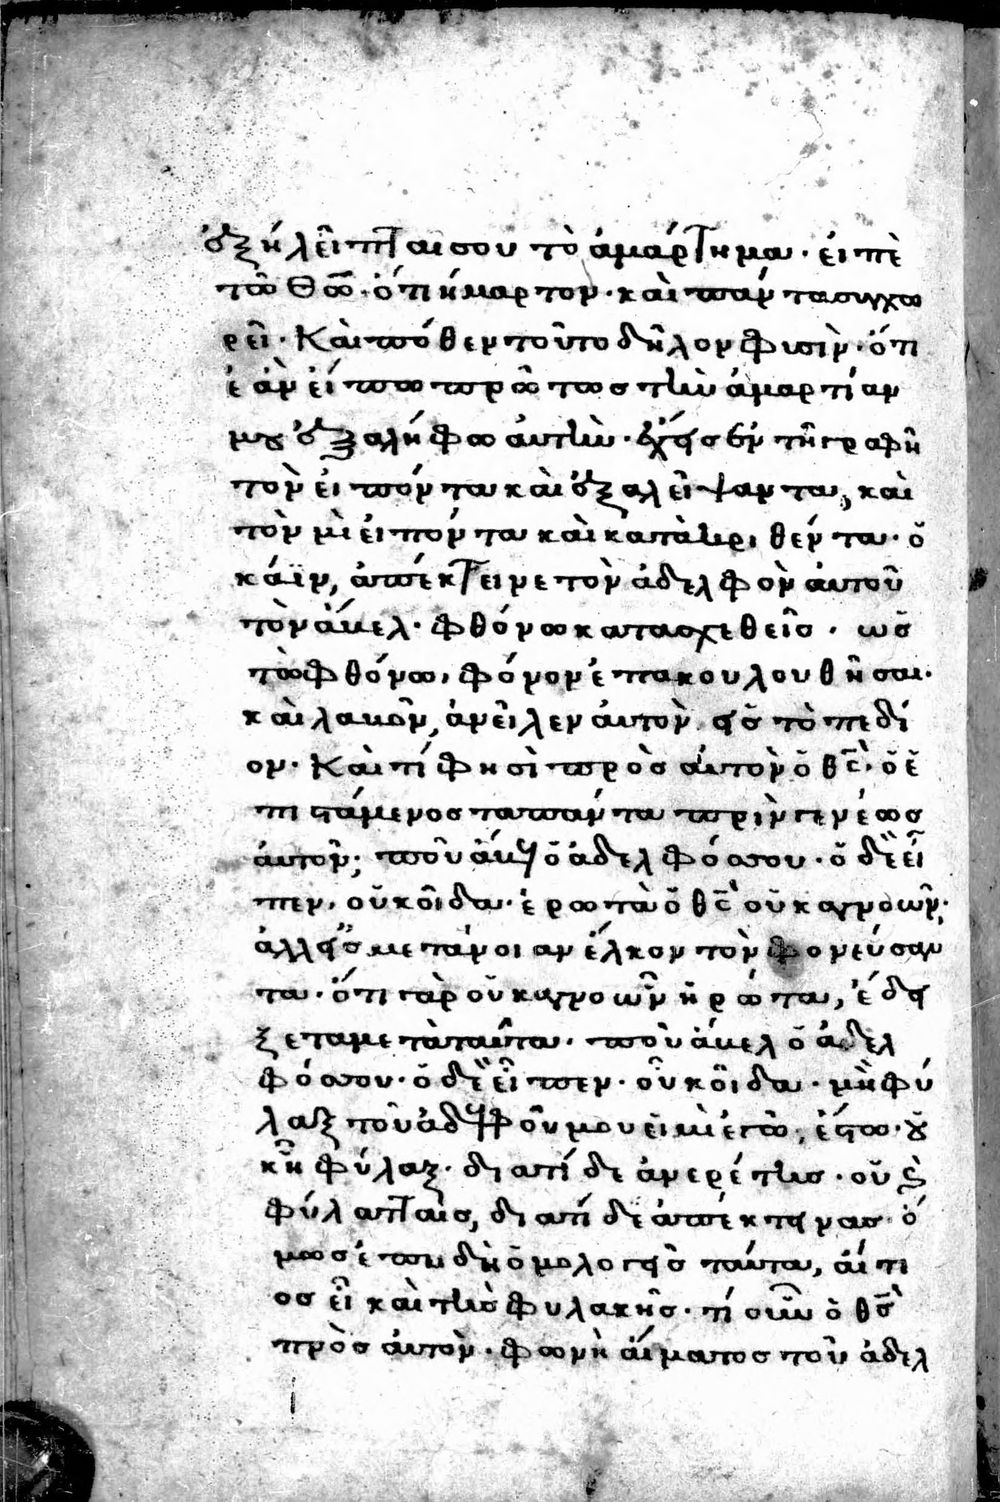 ἐξήλειπταί σου τὸ ἁμάρτημα· εἰπὲ
τῶ Θῶ· ὅτι ἥμαρτον· καὶ πάντα συγχω
ρεῖ· Καὶ πόθεν τοῦτο δῆλον φισὶν· ὅτι
ἐὰν εἴπω πρῶτως τὴν ἁμαρτίαν
μου ἐξαλήφω αὐτὴν· ἔχεις ἐν τῆ γραφῆ
τὸν εἰπόντα καὶ ἐξαλεῖψαντα, καὶ
τὸν μὶ εἰπόντα καὶ κατακριθέντα· ὁ
κάϊν, ἀπέκτεινε τὸν ἀδελφὸν αὐτοῦ
τὸν ἄβελ· φθόνω κατασχεθεῖς· ὡς
τῶ φθόνω, φόνον ἐπακουλουθῆσαι·
καὶ λαβῶν, ἀνεῖλεν αὐτὸν εἰς τὸ πεδί
ον· Καὶ τί φησὶ πρὸς αὐτὸν ὁ θς̅· ὁ ἐ
πιστάμενος τα πάντα πρὶν γενέσως
αὐτῶν; ποῦ ἄβελ ὁ ἀδελφός σου· ὁ δὲ εἶ
πεν, οὐκ οἶδα· ἐρωτὰ ὁ θς̅ οὐκ αγνοῶν·
ἀλλ εἰς μετάνοιαν ἕλκον τὸν φονεύσαν
τα· ὅτι γὰρ οὐκ αγνοῶν ἠρώτα, ἐδεί
ξετο μετὰ ταῦτα· ποὺ ἄβελ ὁ ἀδελ
φός σου· ὁ δὲ εἶπεν· οὐκ οἶδα· μὴ φύ
λαξ τοῦ ἀδελφοῦ μου εἰμὶ ἐγῶ; ἔστω· οὐ
κ ῆ φύλαξ· διατί δε ἀνερέτις· οὐκ
φύλαπταις, διατί δὲ ἀπέκτεινας· ὅ
μως ἐπειδὴ ὁμολογεῖς ταύτα, αἴτι
ος εἶ καὶ τῆς φυλακῆς· τί οὖν ὁ θς̅
πρὸς αὐτὸν· φωνὴ αἵματος τοῦ ἀδελ